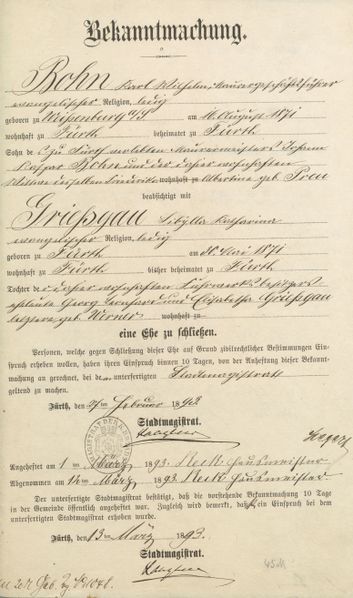 Bekanntmachung.
Bohn Karl Wilhelm, Maurergeschäftsführer
evangelischer Religion, ledig
geboren zu Weißenburg a/S am 16. August 1871
wohnhaft zu Fürth beheimatet zu Fürth
Sohn des zu Fürth verlebten Maurermeisters Johann
Kaspar Bohn und der daher wohnhaften
Witwe desselben Friedrike wohnhaft zu Albertine geb. Preu
beabsichtigt mit
Grießgau Sibylla Katharina
evangelischer Religion, ledig
geboren zu Fürth am 20. Mai 1871
wohnhaft zu Fürth bisher beheimatet zu Fürth
Tochter der daher wohnhaften Fuhrwerksbesitzers
eheleute Georg Leonhard und Elisabetha Grießgau
letztere geb. Werner wohnhaft zu
eine Ehe zu schließen.
Personen, welche gegen Schließung dieser Ehe auf Grund zivilrechtlicher Bestimmungen Ein-
spruch erheben wollen, haben ihren Einspruch binnen 10 Tagen, von der Anheftung dieser Bekannt-
machung an gerechnet, bei dem unterfertigten Stadtmagistrat
geltend zu machen.
Fürth, den 27. Februar 1893
Stadtmagistrat.
Angeheftet am 1. März 1893. Hausmeister
Abgenommen am 12. März 1893. Hausmeister.
Der unterfertigte Stadtmagistrat bestätigt, daß die vorstehende Bekanntmachung 10 Tage
in der Gemeinde öffentlich angeheftet war. Zugleich wird bemerkt, daß ein Einspruch bei dem
unterfertigten Stadtmagistrat erhoben wurde.
Fürth, den 13. März 1893.
Stadtmagistrat.